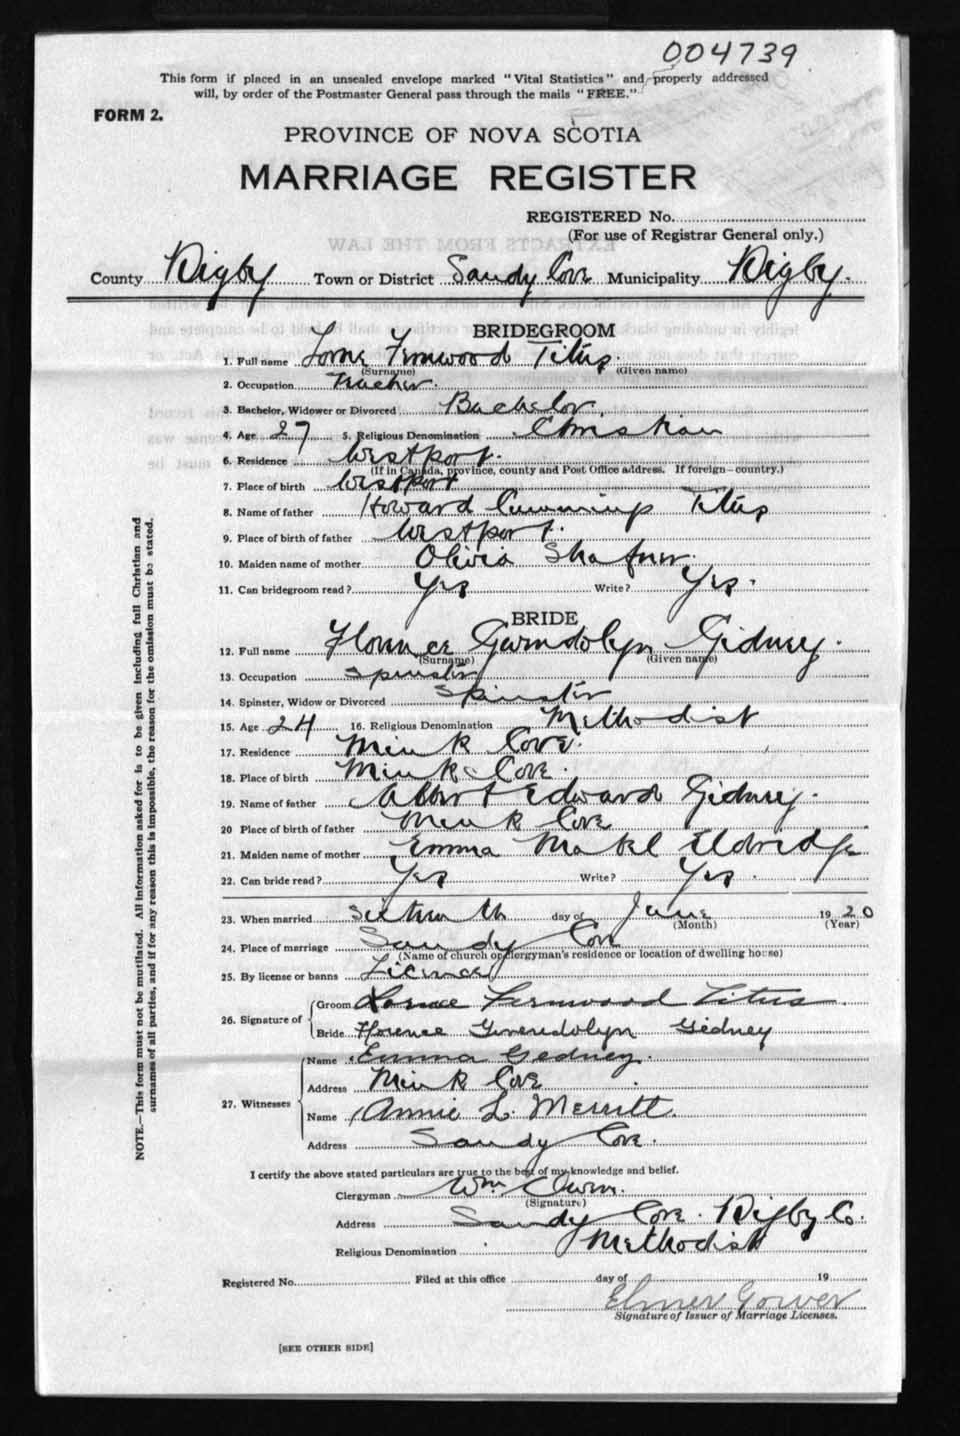 004739
This form if placed in an unsealed envelope marked "Vital Statistics" and properly addressed
will, by order of the Postmaster General pass through the mails "FREE."
FORM 2.
PROVINCE OF NOVA SCOTIA
MARRIAGE REGISTER
REGISTERED No.
(For use of Registrar General only.)
EXTRACTS FROM THE LAW
County Digby Town or District Sandy Cove Municipality Digby.
BRIDEGROOM
1. Full name Lorne Fernwood Titus
(Surname) (Given name)
2. Occupation Teacher.
3. Bachelor, Widower or Divorced Bachelor,
4. Age 27 5. Religious Denomination Christian
6. Residence Westport.
(If in Canada, province, county and Post Office address. If foreign–country.)
7. Place of birth Westport
8. Name of father Howard Cummings Titus
9. Place of birth of father Westport.
10. Maiden name of mother Olivia Shafner.
11. Can bridegroom read? Yes Write? Yes.
BRIDE
12. Full name Florence Gwendolyn Gidney.
(Surname) (Given name)
13. Occupation Spinster
14. Spinster, Widow or Divorced Spinster
15. Age 24 16. Religious Denomination Methodist
17. Residence Mink Cove.
18. Place of birth Mink Cove.
19. Name of father Albert Edward Gidney.
20 Place of birth of father Mink Cove
21. Maiden name of mother Emma Mabel Eldridge
22. Can bride read? Yes Write? Yes.
23. When married sixteenth day of June 1920
(Month) (Year)
24. Place of marriage Sandy Cove
(Name of church or clergyman's residence or location of dwelling house)
25. By license or banns License
26. Signature of Groom Fernwood Titus.
Bride Florence Gwendolyn Gidney
27. Witnesses Name Emma Gidney.
Address Mink Cove
Name Annie L. Merritt.
Address Sandy Cove.
I certify the above stated particulars are true to the best of my knowledge and belief.
Clergyman Wm. Owen.
(Signature)
Address Sandy Cove. Digby Co.
Religious Denomination Methodist
Registered No. Filed at this office day of 19
Elmer Gower
Signature of Issuer of Marriage Licenses.
[SEE OTHER SIDE]
NOTE.—This form must not be mutilated. All information asked for is to be given including full Christian and
surnames of all parties, and if for any reason this is impossible, the reason for the omission must be stated.